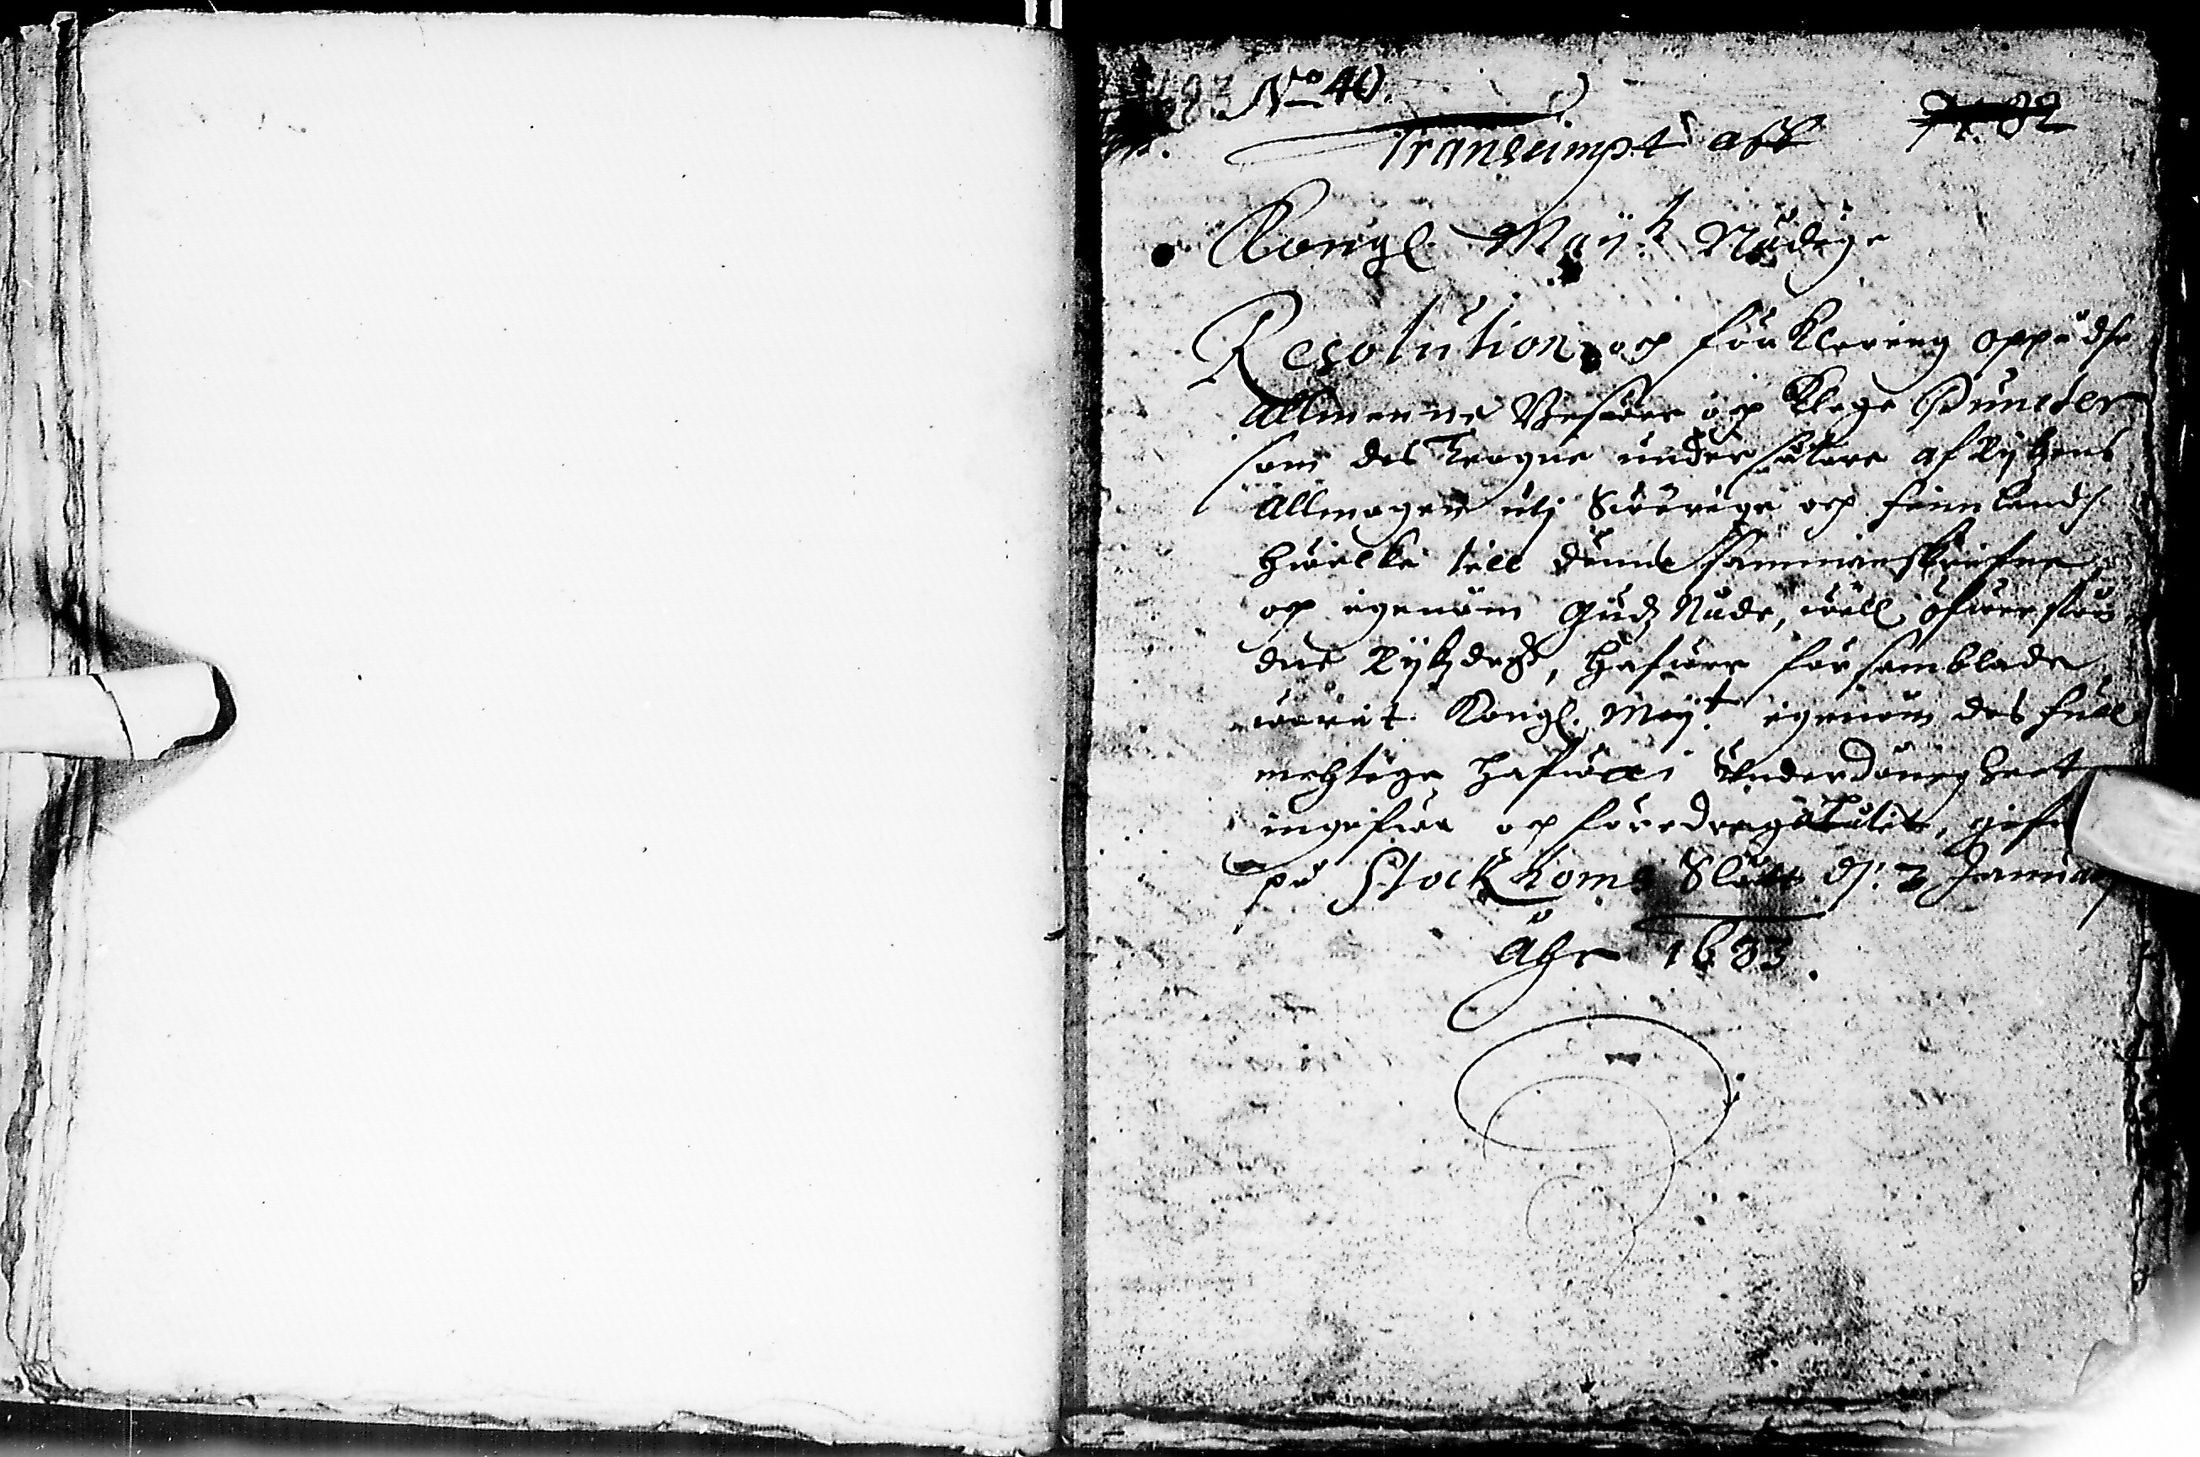 No 40.
Transumpt aff
Kongl. Maÿtz Nådige
Resolution och förklaring oppå dhe
Allmenne Besvär och Klage Puncter
som des Trogne undersåtare af Rijkzens
Allmogen uti Swerige och finnland,
hwilke till denne sammanskrefne
och igenom Gudz Nåde, wäll öfwerstån
dne Rijkzdagh, hafwer församblade
warit Kongl. Maÿt igenom des full
mechtige hafwer i Underdånigheet
ingifwa och föredraga låtit, gifn
på Stockholms Slott d. 3 Januarij
Åhr 1683.